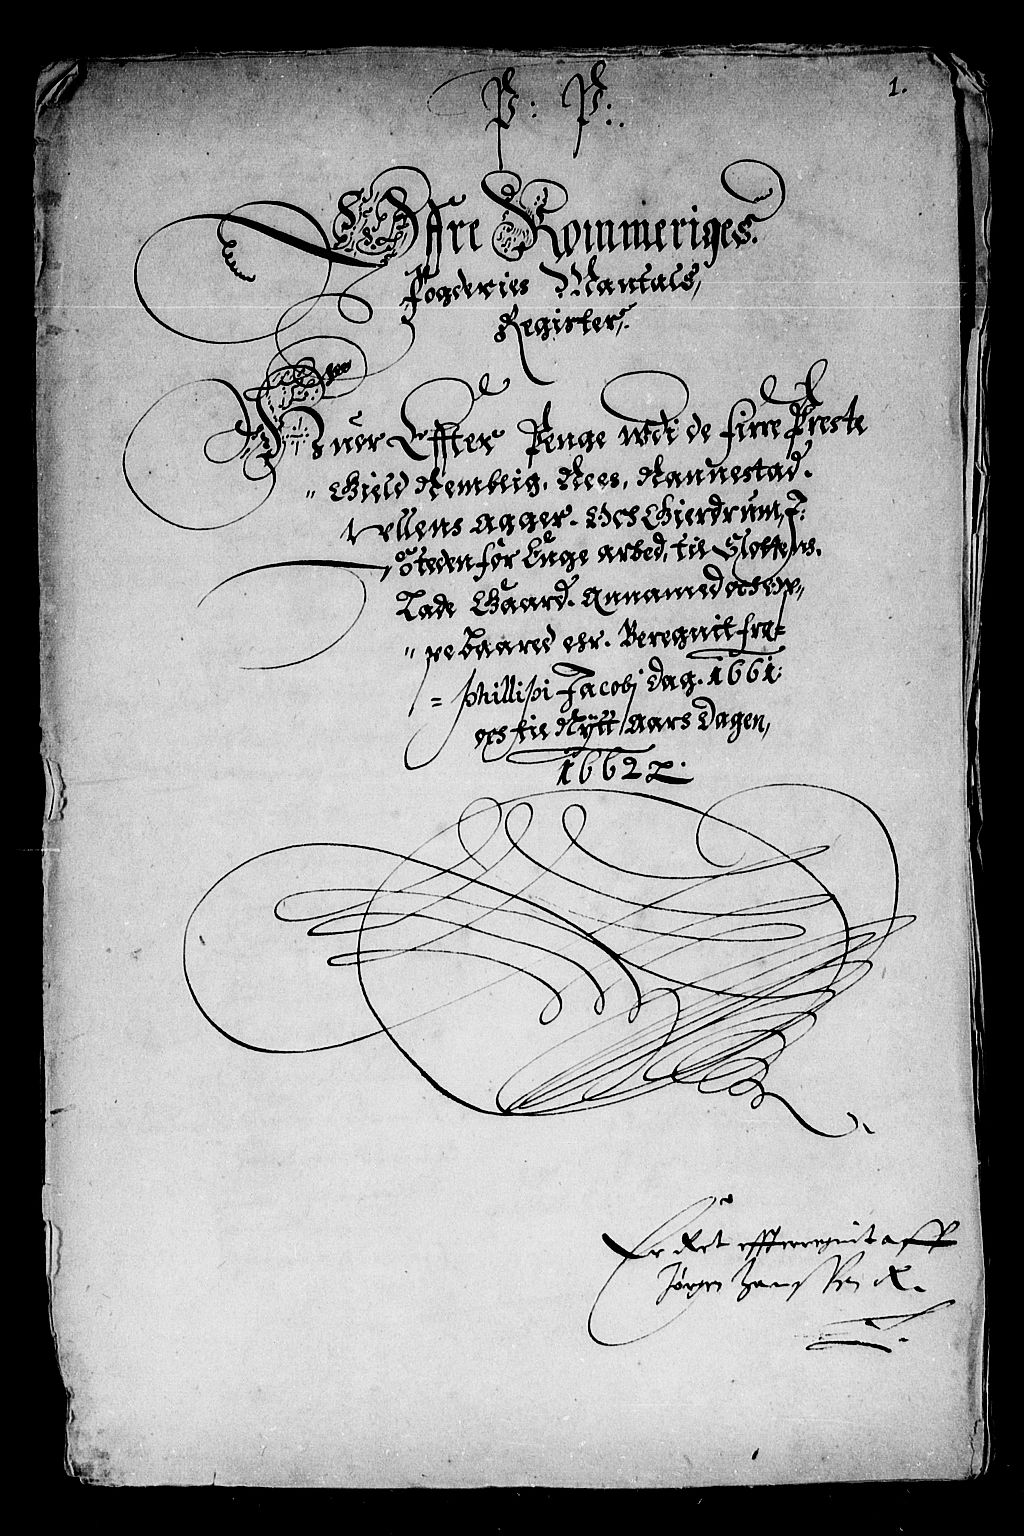 P: P:.
1.
Øffre Rommeriges.
Fogderies Mantals,
Register,.
Huor Effter Penge wdi de firre Preste
" Gield Nemblig. Nees, Nannestad.
Ullens Agger. Och Gierdrum, J:
Steden for Enge arbed, til Slottens.
Lade Gaard. Annamed och op,,
" pe baared ehr. Beregnit fra=
= Phillipi Jacobj dag. 1661:
och til Nytt Aars Dagen,
1662
Er Ret effterregnit aff
Jørgen Hanssen R.